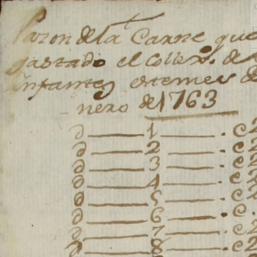 Razon de la Carne que
gastado el Collex. de
infantes este mes de
nero de 1763
d 1 c2
d 2 c2
d 3 c2
d 4 c2
d 5 c2
d 6 c
d 7 c2
d 8 c2